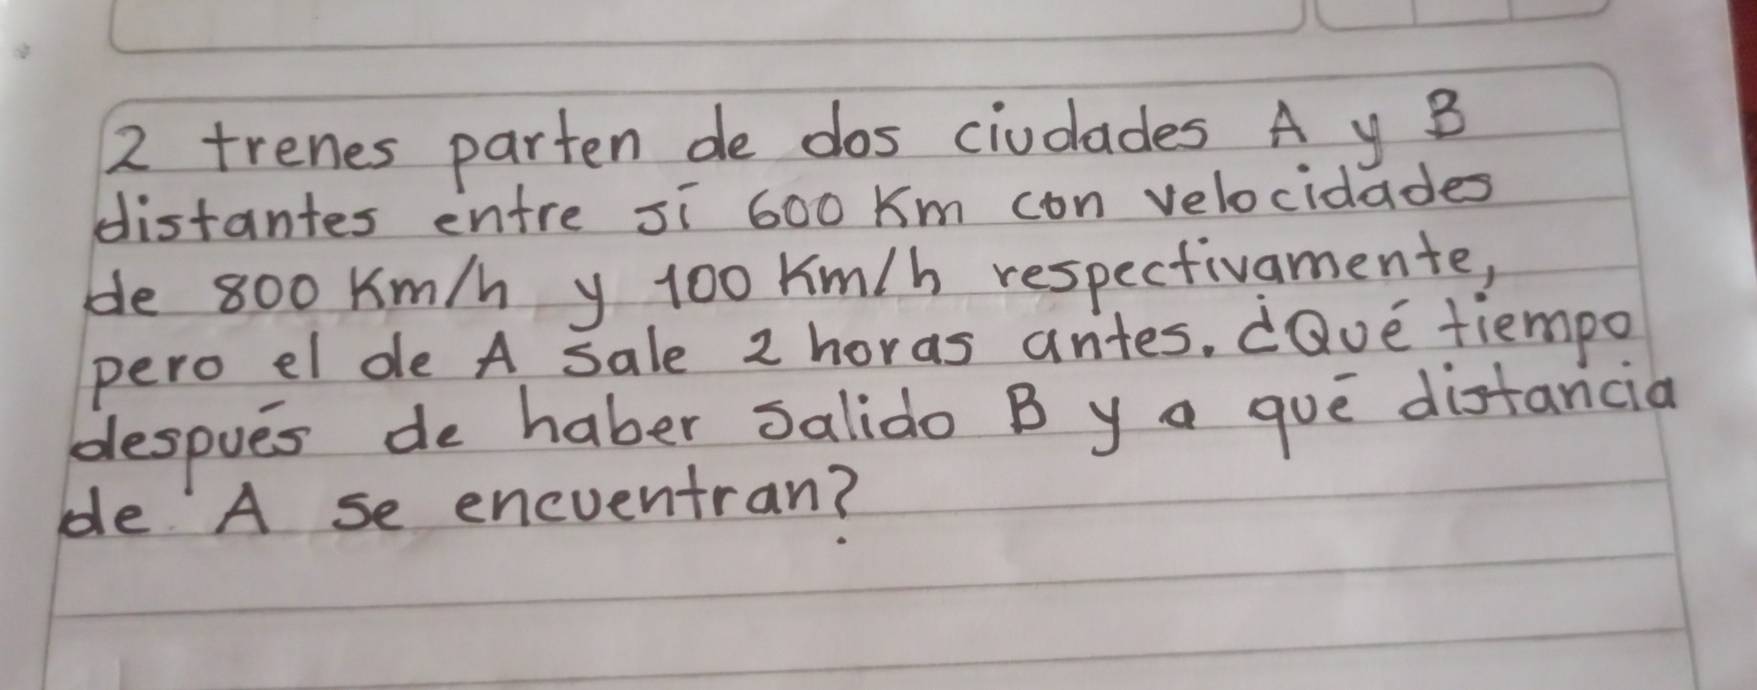 2 trenes parten de dos ciudades A y B
distantes entre sí 600 Km con velocidades
de 800 Km/h y 100 Km/h respectivamente,
pero el de A sale 2 horas antes. ¿Qué tiempo
después de haber salido B y a qué distancia
de A se encuentran?